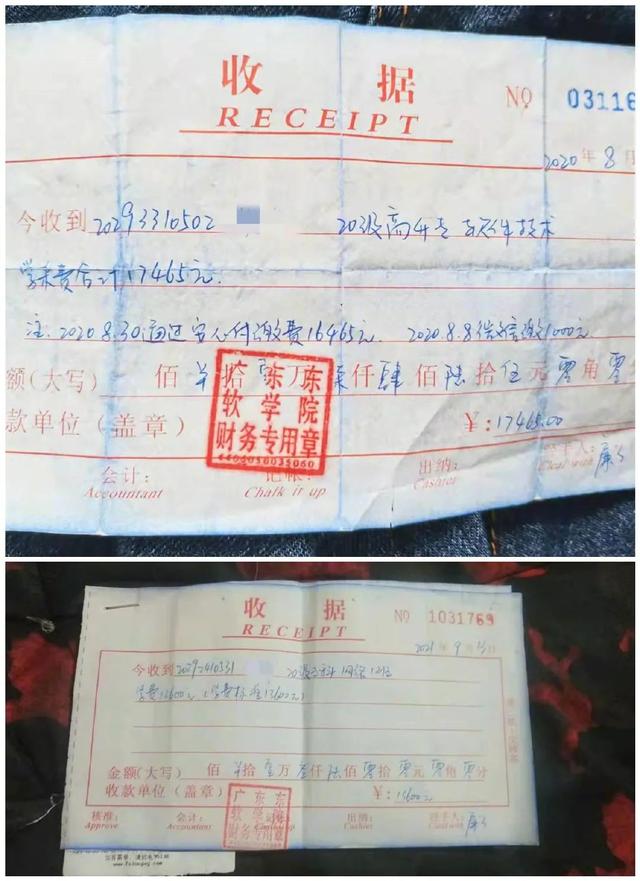 收据
RECEIPT
№ 03116
2020年8月
今收到20293310502 20级高升专 软件技术
学杂费合计17465元.
注: 2020.8.30通过安心付缴费16465元. 2020.8.8微信缴1000元.
额(大写) 佰 拾壹万柒仟肆佰陆拾伍元零角零
款单位(盖章) ¥:17465.00
东东
软学院
财务专用章
会计: 记帐: 出纳: 经手人:
Accountant Chalk it up Cashier Cleal with
收据
RECEIPT
№ 1031769
2021年9月
今收到2029240331 20级 网络
学费13600元(学费标准 元)
金额(大写) 佰 拾壹万叁仟陆佰零拾零元零角零分
收款单位(盖章) ¥:13600元
广东东
软学院
财务专用章
核准: 会计: 出纳: 经手人:
Approve Accountant Cashier